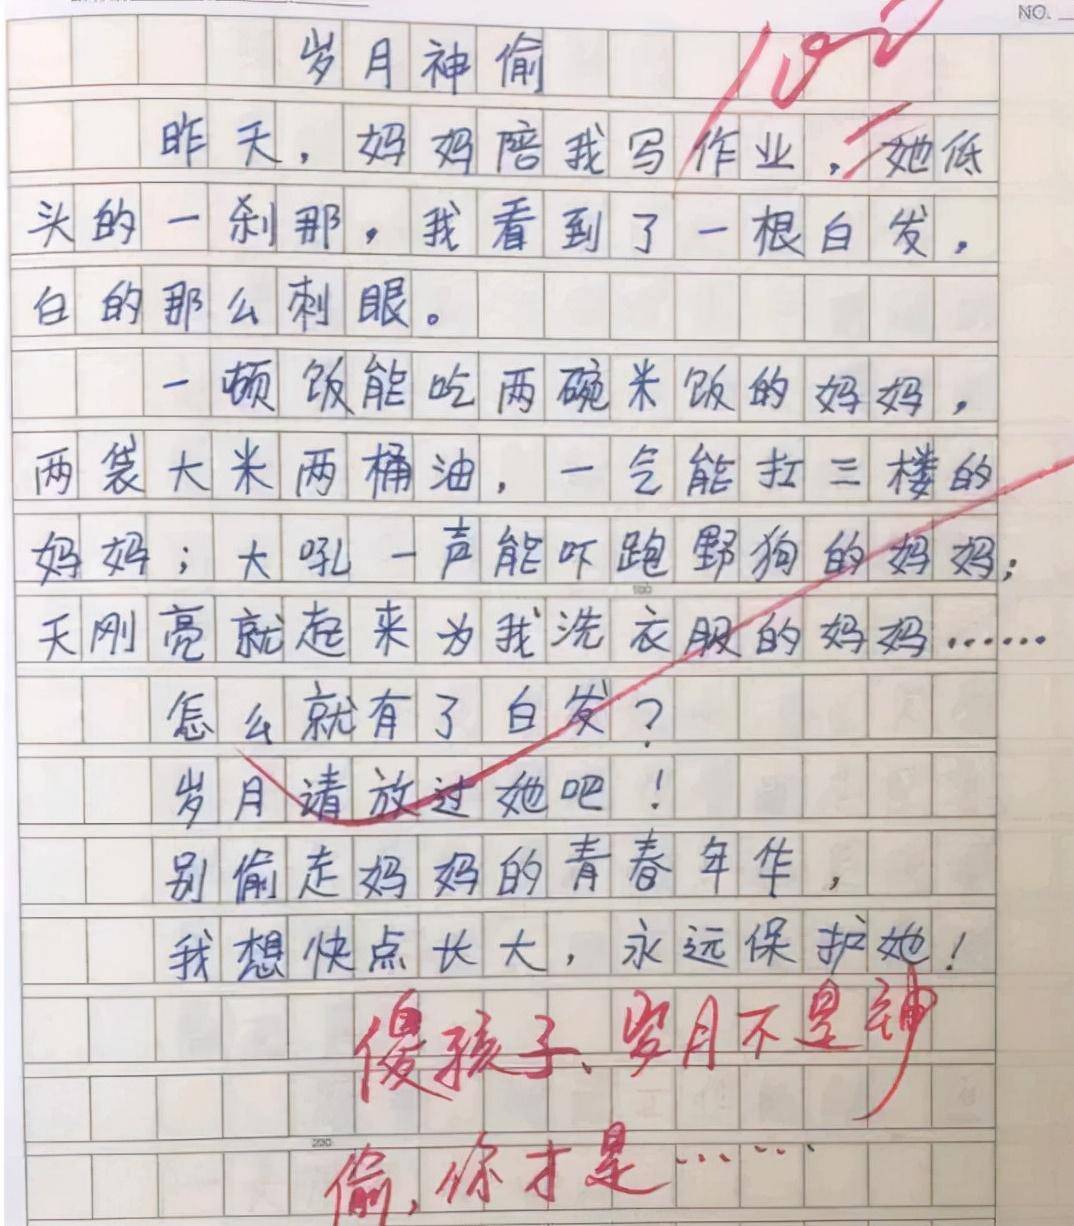 NO.
100
岁月神偷
昨天，妈妈陪我写作业，她低
头的一刹那，我看到了一根白发，
白的那么刺眼。
一顿饭能吃两碗米饭的妈妈，
两袋大米两桶油，一气能扛三楼的
妈妈；大吼一声能吓跑野狗的妈妈；
100
天刚亮就起来为我洗衣服的妈妈……
怎么就有了白发？
岁月请放过她吧！
别偷走妈妈的青春年华，
我想快点长大，永远保护她！
傻孩子、岁月不是神
200
偷，你才是……